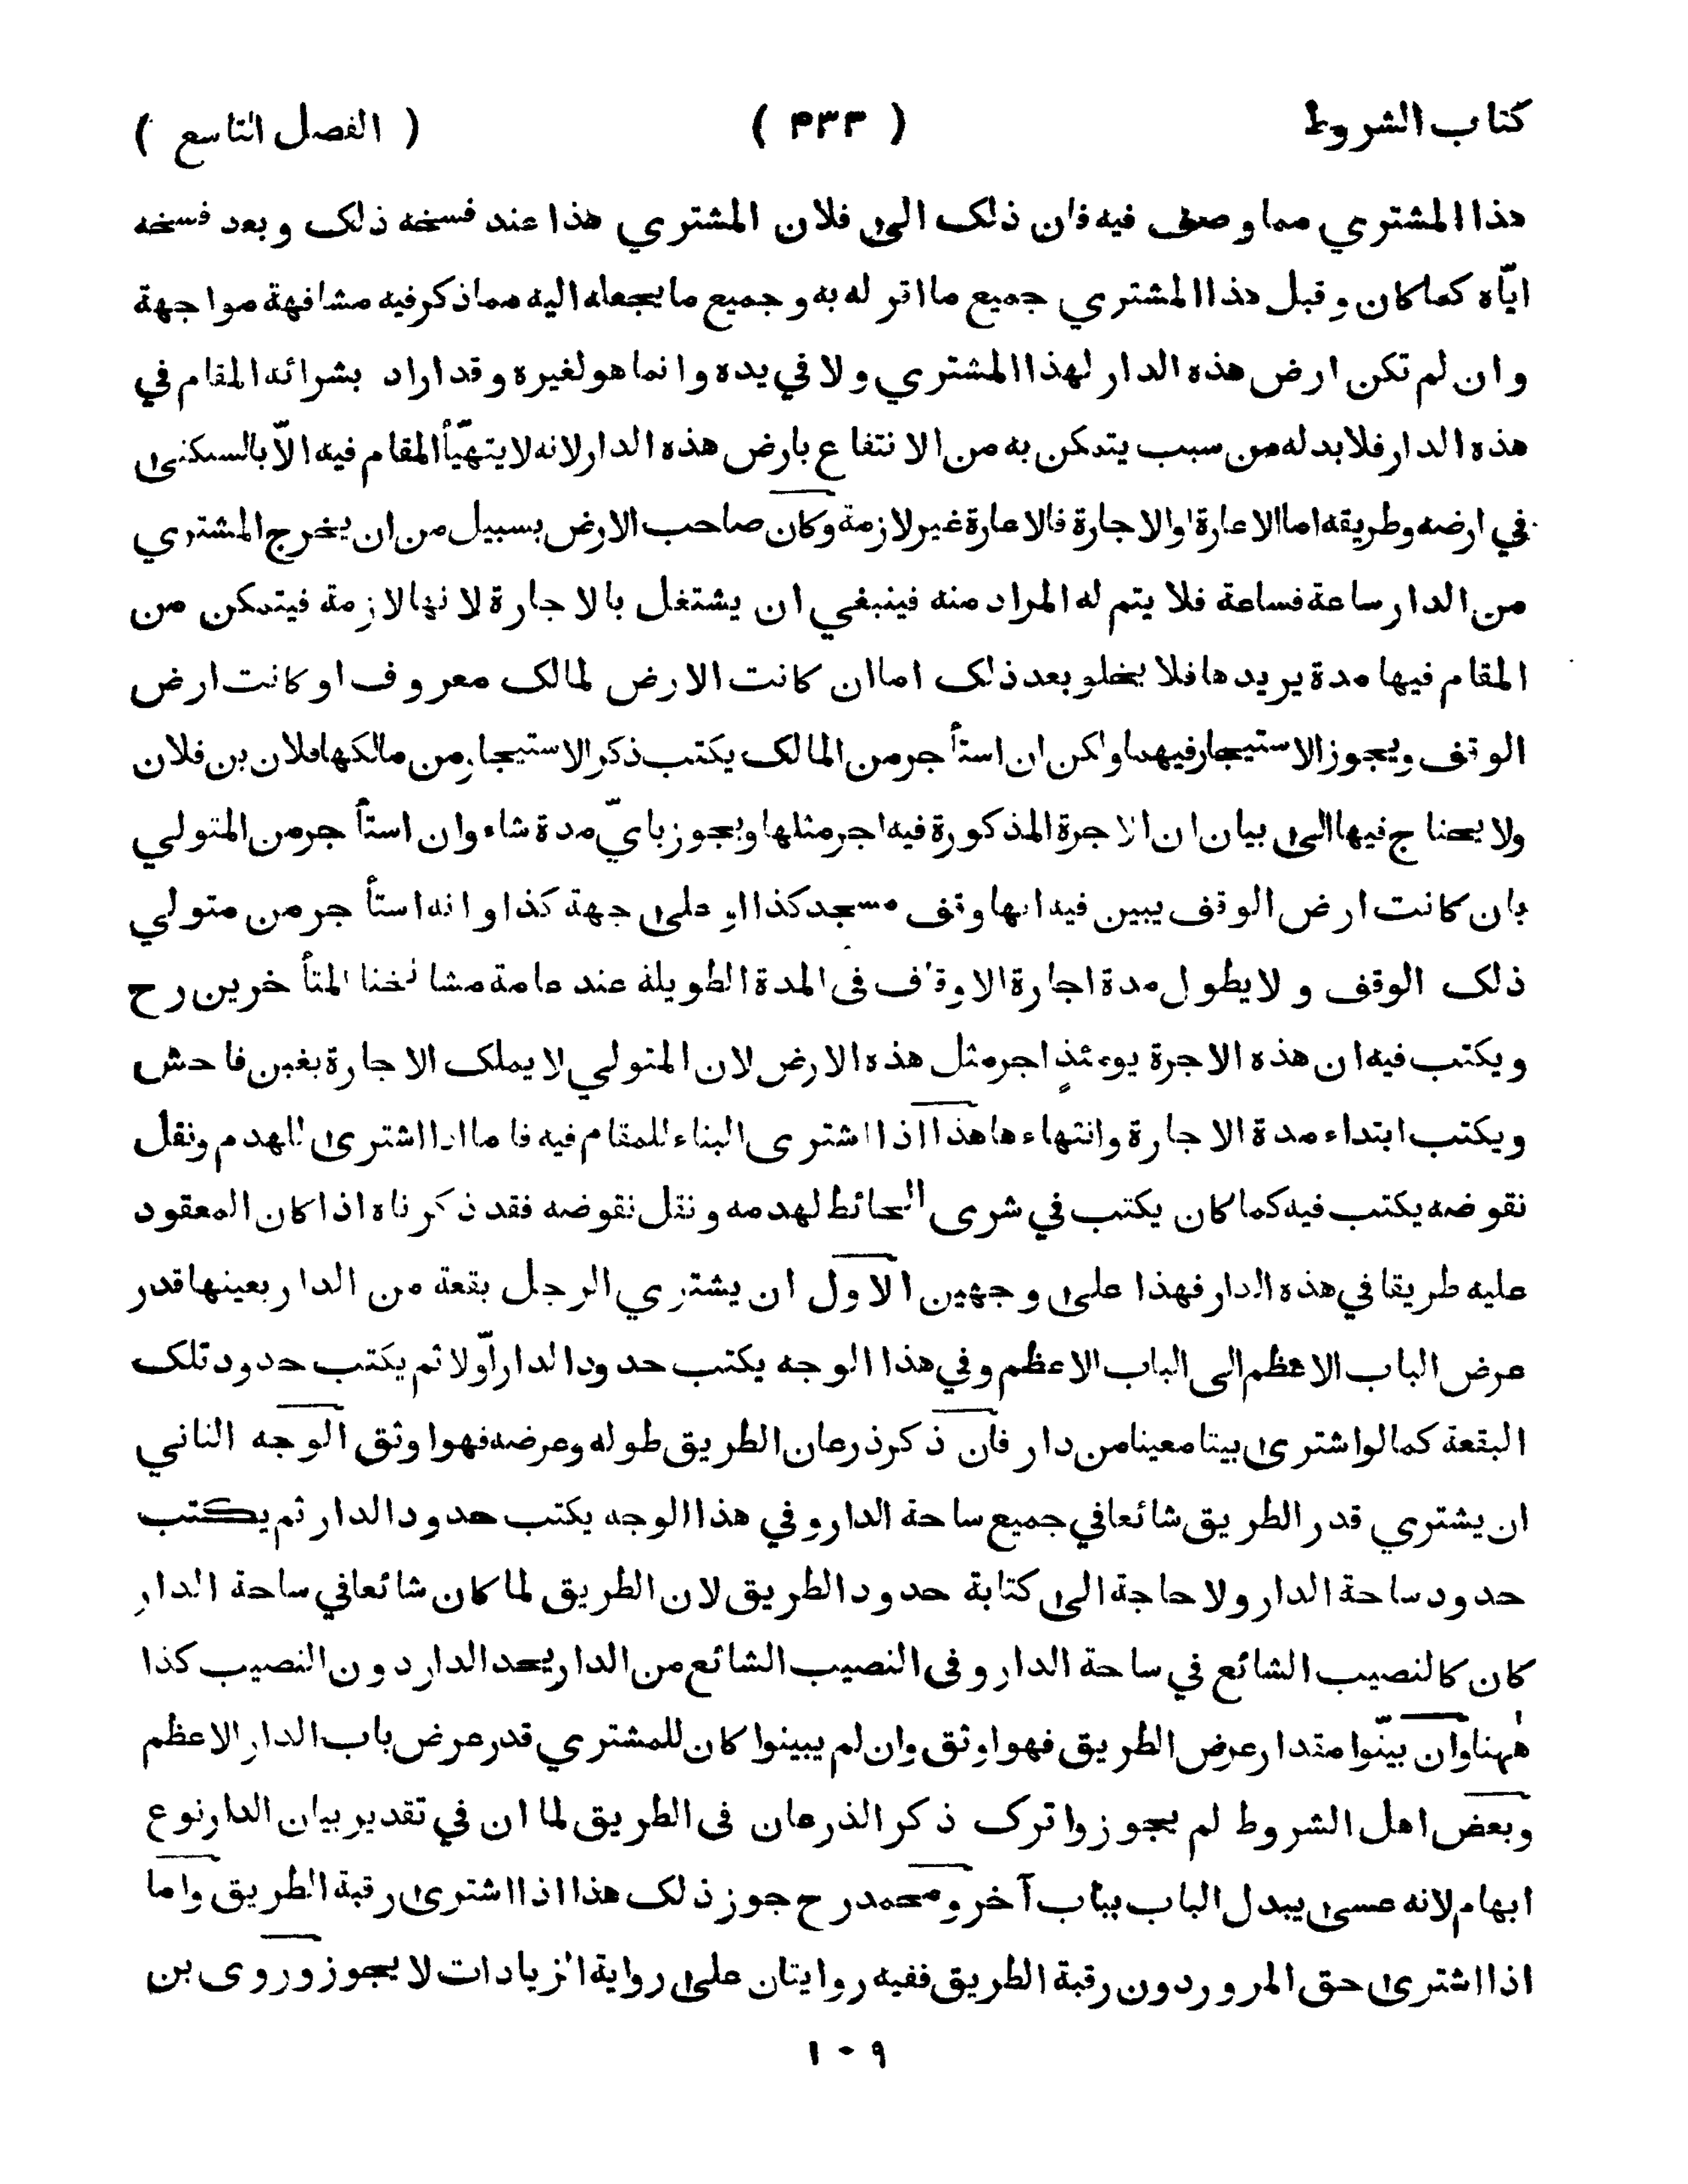 كتاب الشروط ( ۴۳۳ ) ( الفصل التاسع )
هذا المشتري مما وصف فيه فان ذلك الى فلان المشتري هذا عند فسخه ذلك وبعد فسخه
ايّاه كما كان وقبل هذا المشتري جميع ما اقر له به وجميع ما يجعله اليه مما ذكر فيه مشافهة مواجهة
وان لم تكن ارض هذه الدار لهذا المشتري ولا في يده وانما هو لغيره وقد اراد بشرائه المقام في
هذه الدار فلا بد له من سبب يتمكن به من الانتفاع بارض هذه الدار لانه لا يتهيّأ المقام فيه الاّ بالسكنى
في ارضه وطريقه اما الاعارة او الاجارة فالاعارة غير لازمة وكان صاحب الارض بسبيل من ان يخرج المشتري
من الدار ساعة فساعة فلا يتم له المراد منه فينبغي ان يشتغل بالاجارة لانها لازمة فيتمكن من
المقام فيها مدة يريدها فلا يخلو بعد ذلك اما ان كانت الارض لمالك معروف او كانت ارض
الوقف ويجوز الاستيجار فيهما ولكن ان استأجر من المالك يكتب ذكر الاستيجار من مالكها فلان بن فلان
ولا يحتاج فيها الى بيان ان الاجرة المذكورة فيه اجر مثلها ويجوز باىّ مدة شاء وان استأجر من المتولي
بان كانت ارض الوقف يبين فيه انها وقف مسجد كذا او على جهة كذا وانه استأجر من متولي
ذلك الوقف ولا يطول مدة اجارة الاوقاف فى المدة الطويلة عند عامة مشائخنا المتأخرين رح
ويكتب فيه ان هذه الاجرة يومئذٍ اجر مثل هذه الارض لان المتولي لا يملك الاجارة بغبن فاحش
ويكتب ابتداء مدة الاجارة وانتهاءها هذا اذا اشترى البناء للمقام فيه فاما اذا اشترى للهدم ونقل
نقوضه يكتب فيه كما كان يكتب في شرى الحائط لهدمه ونقل نقوضه فقد ذكرناه اذا كان المعقود
عليه طريقا في هذه الدار فهذا على وجهين الاول ان يشتري الرجل بقعة من الدار بعينها قدر
عرض الباب الاعظم الى الباب الاعظم وفي هذا الوجه يكتب حدود الدار اوّلا ثم يكتب حدود تلك
البقعة كما لو اشترى بيتا معينا من دار فان ذكر ذرعان الطريق طوله وعرضه فهو اوثق الوجه الثاني
ان يشتري قدر الطريق شائعا في جميع ساحة الدار وفي هذا الوجه يكتب حدود الدار ثم يكتب
حدود ساحة الدار ولا حاجة الى كتابة حدود الطريق لان الطريق لما كان شائعا في ساحة الدار
كان كالنصيب الشائع في ساحة الدار وفى النصيب الشائع من الدار يحد الدار دون النصيب كذا
ههنا وان بيّنوا مقدار عرض الطريق فهو اوثق وان لم يبينوا كان للمشتري قدر عرض باب الدار الاعظم
وبعض اهل الشروط لم يجوزوا ترك ذكر الذرعان فى الطريق لما ان في تقدير بيان الدار نوع
ابهام لانه عسى يبدل الباب بباب آخر ومحمد رح جوز ذلك هذا اذا اشترى رقبة الطريق واما
اذا اشترى حق المرور دون رقبة الطريق ففيه روايتان على رواية الزيادات لا يجوز وروى بن
١٠٩